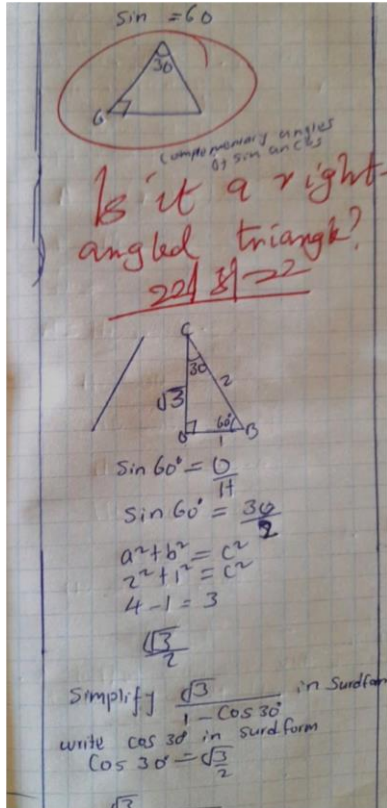 Sin = 60
30
6
complementary angles
of sin angles
Is it a right-
angled triangle?
22/3/22
C
30
2
√3
60°
B
1
Sin 60° = O/H
Sin 60° = 30/2
a² + b² = c²
2² + 1² = c²
4 - 1 = 3
√3/2
Simplify √3/(1 - Cos 30°) in Surdform
write cos 30° in surdform
Cos 30° = √3/2
√3